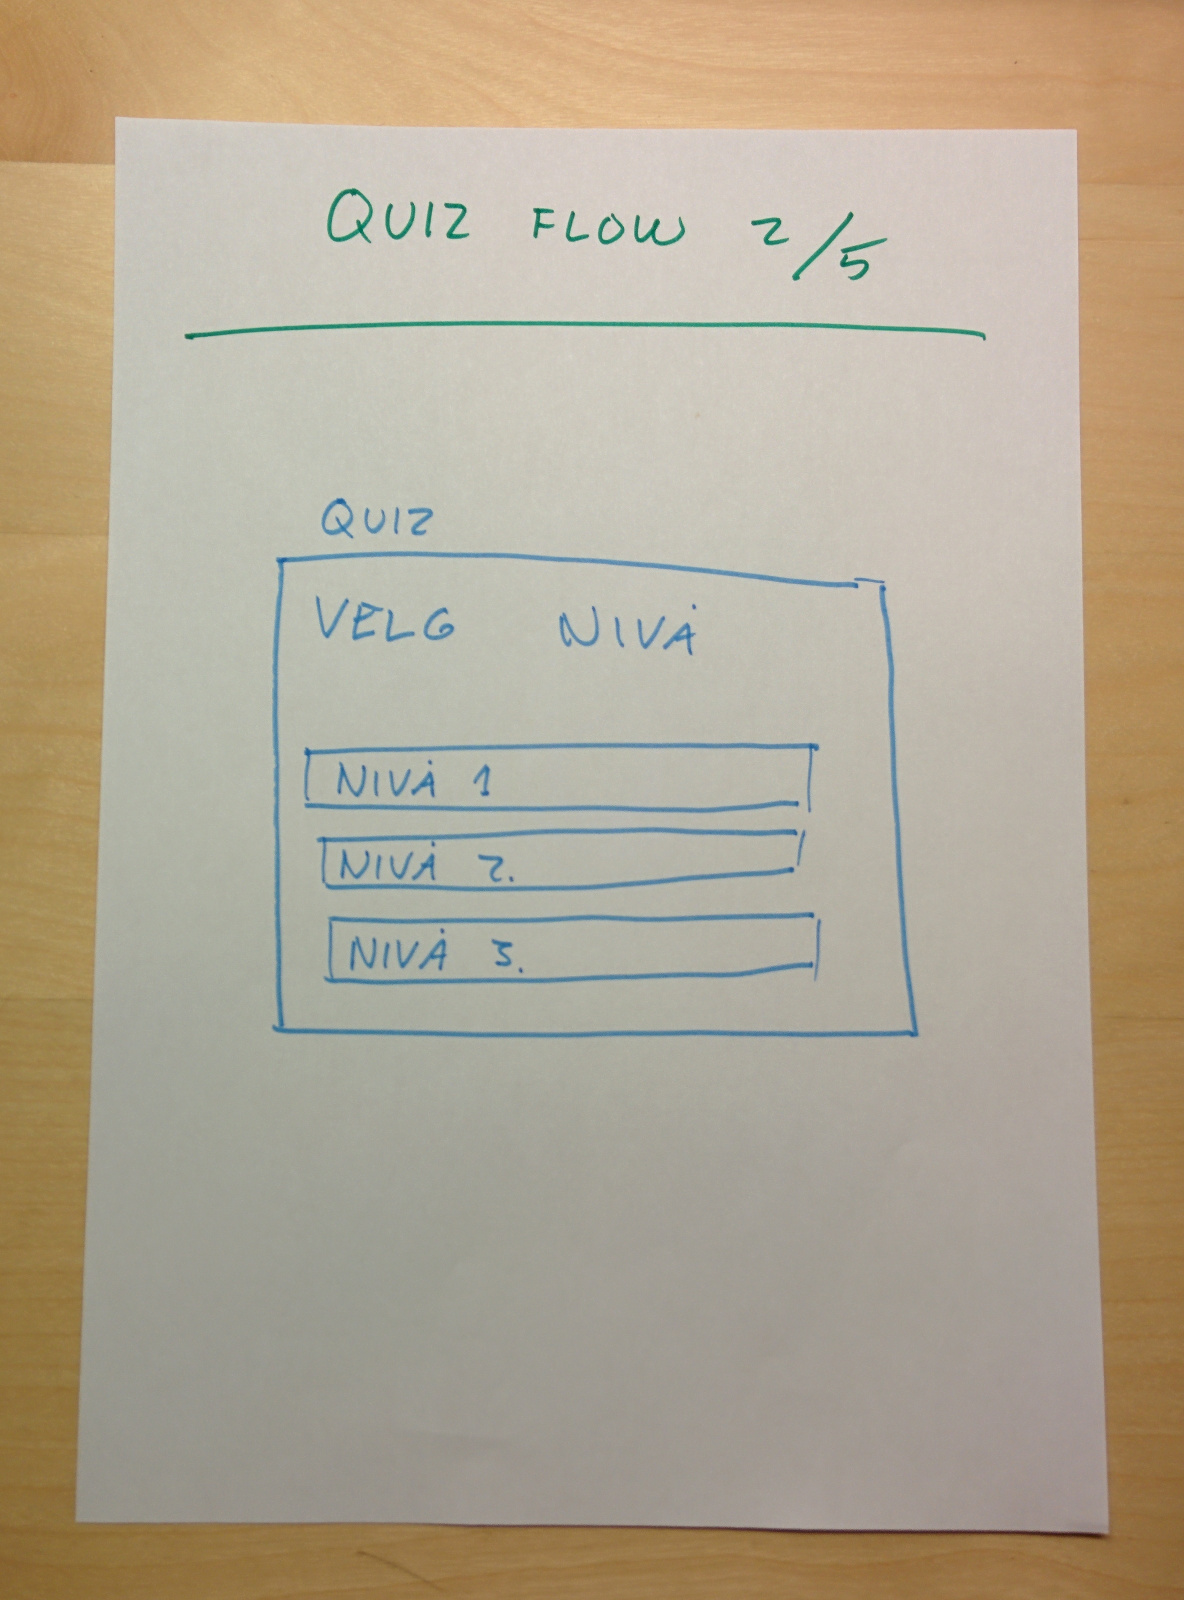 QUIZ FLOW 2/5
QUIZ
VELG NIVÅ
NIVÅ 1
NIVÅ 2.
NIVÅ 3.